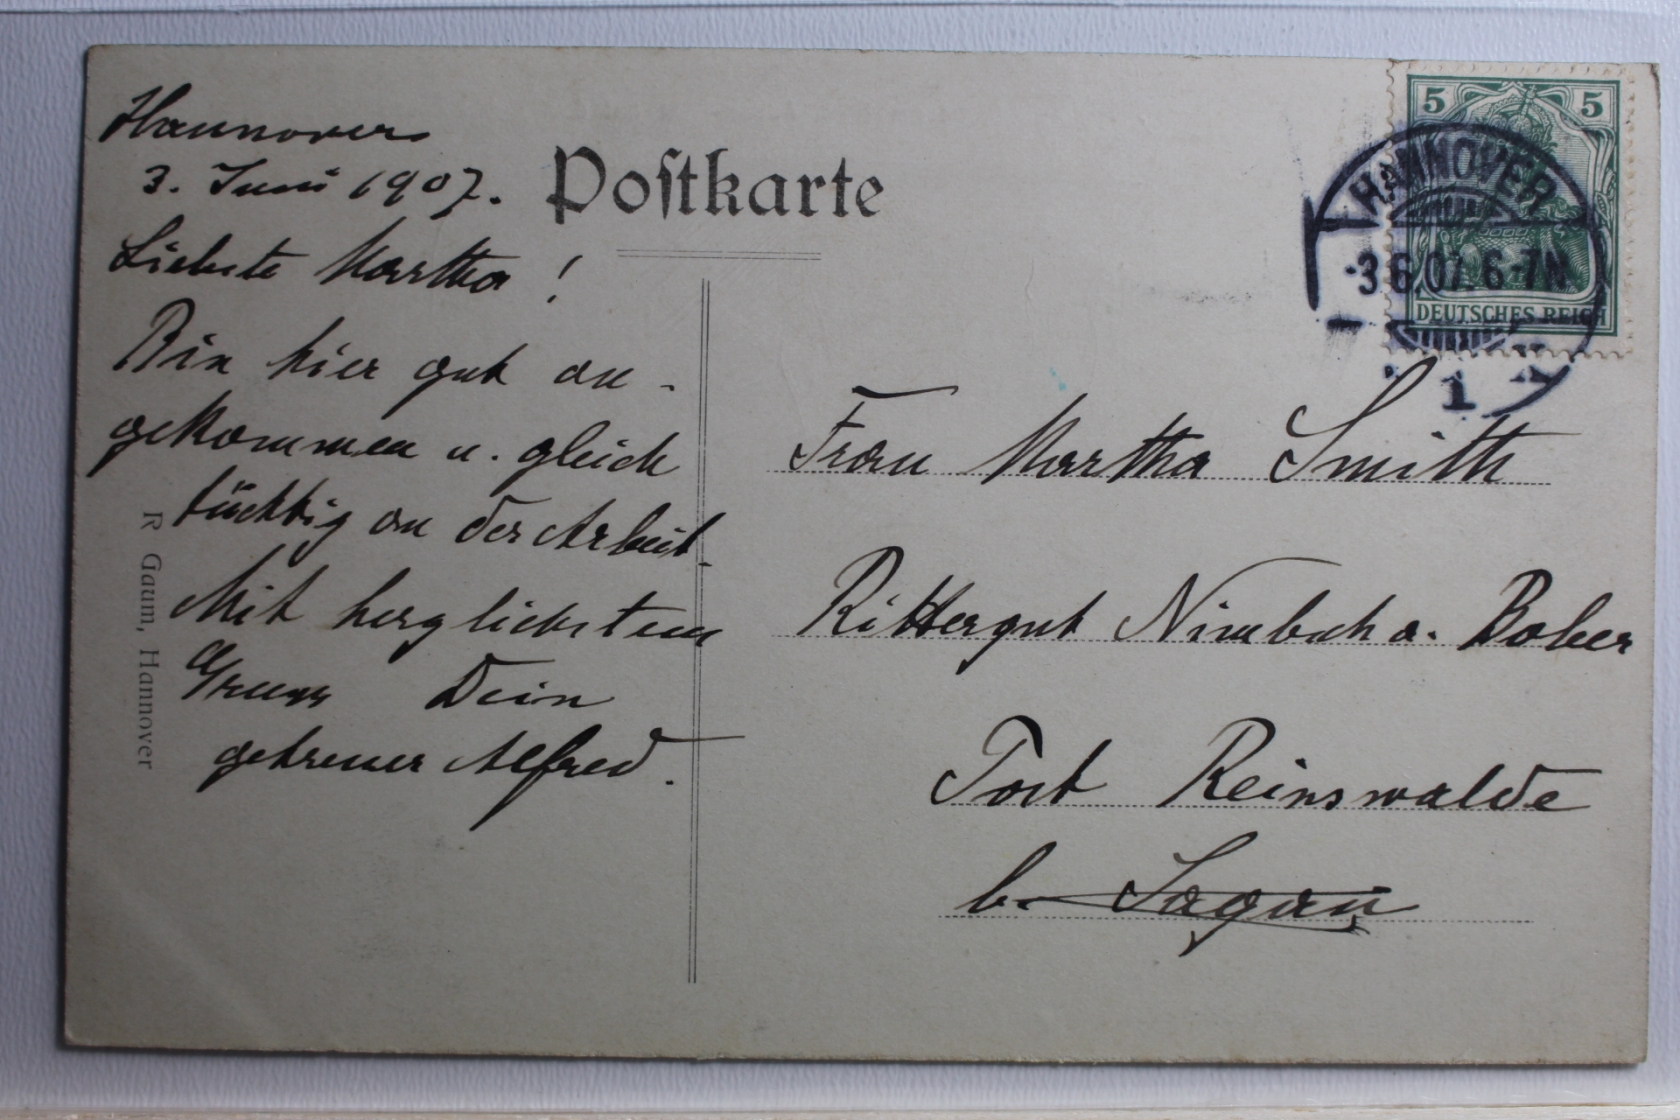 Hannover
3. Juni 1907.
Liebste Martha!
Bin hier gut an-
gekommen u. gleich
tüchtig an der Arbeit.
Mit herzlichstem
Gruss Dein
getreuer Alfred.
R Gaum, Hannover
Postkarte
5 5
DEUTSCHES REICH
HANNOVER
3.6.07. 6-7N
1
Frau Martha Smith
Rittergut Nimbsch a. Bober
Post Reinswalde
b. Sagan